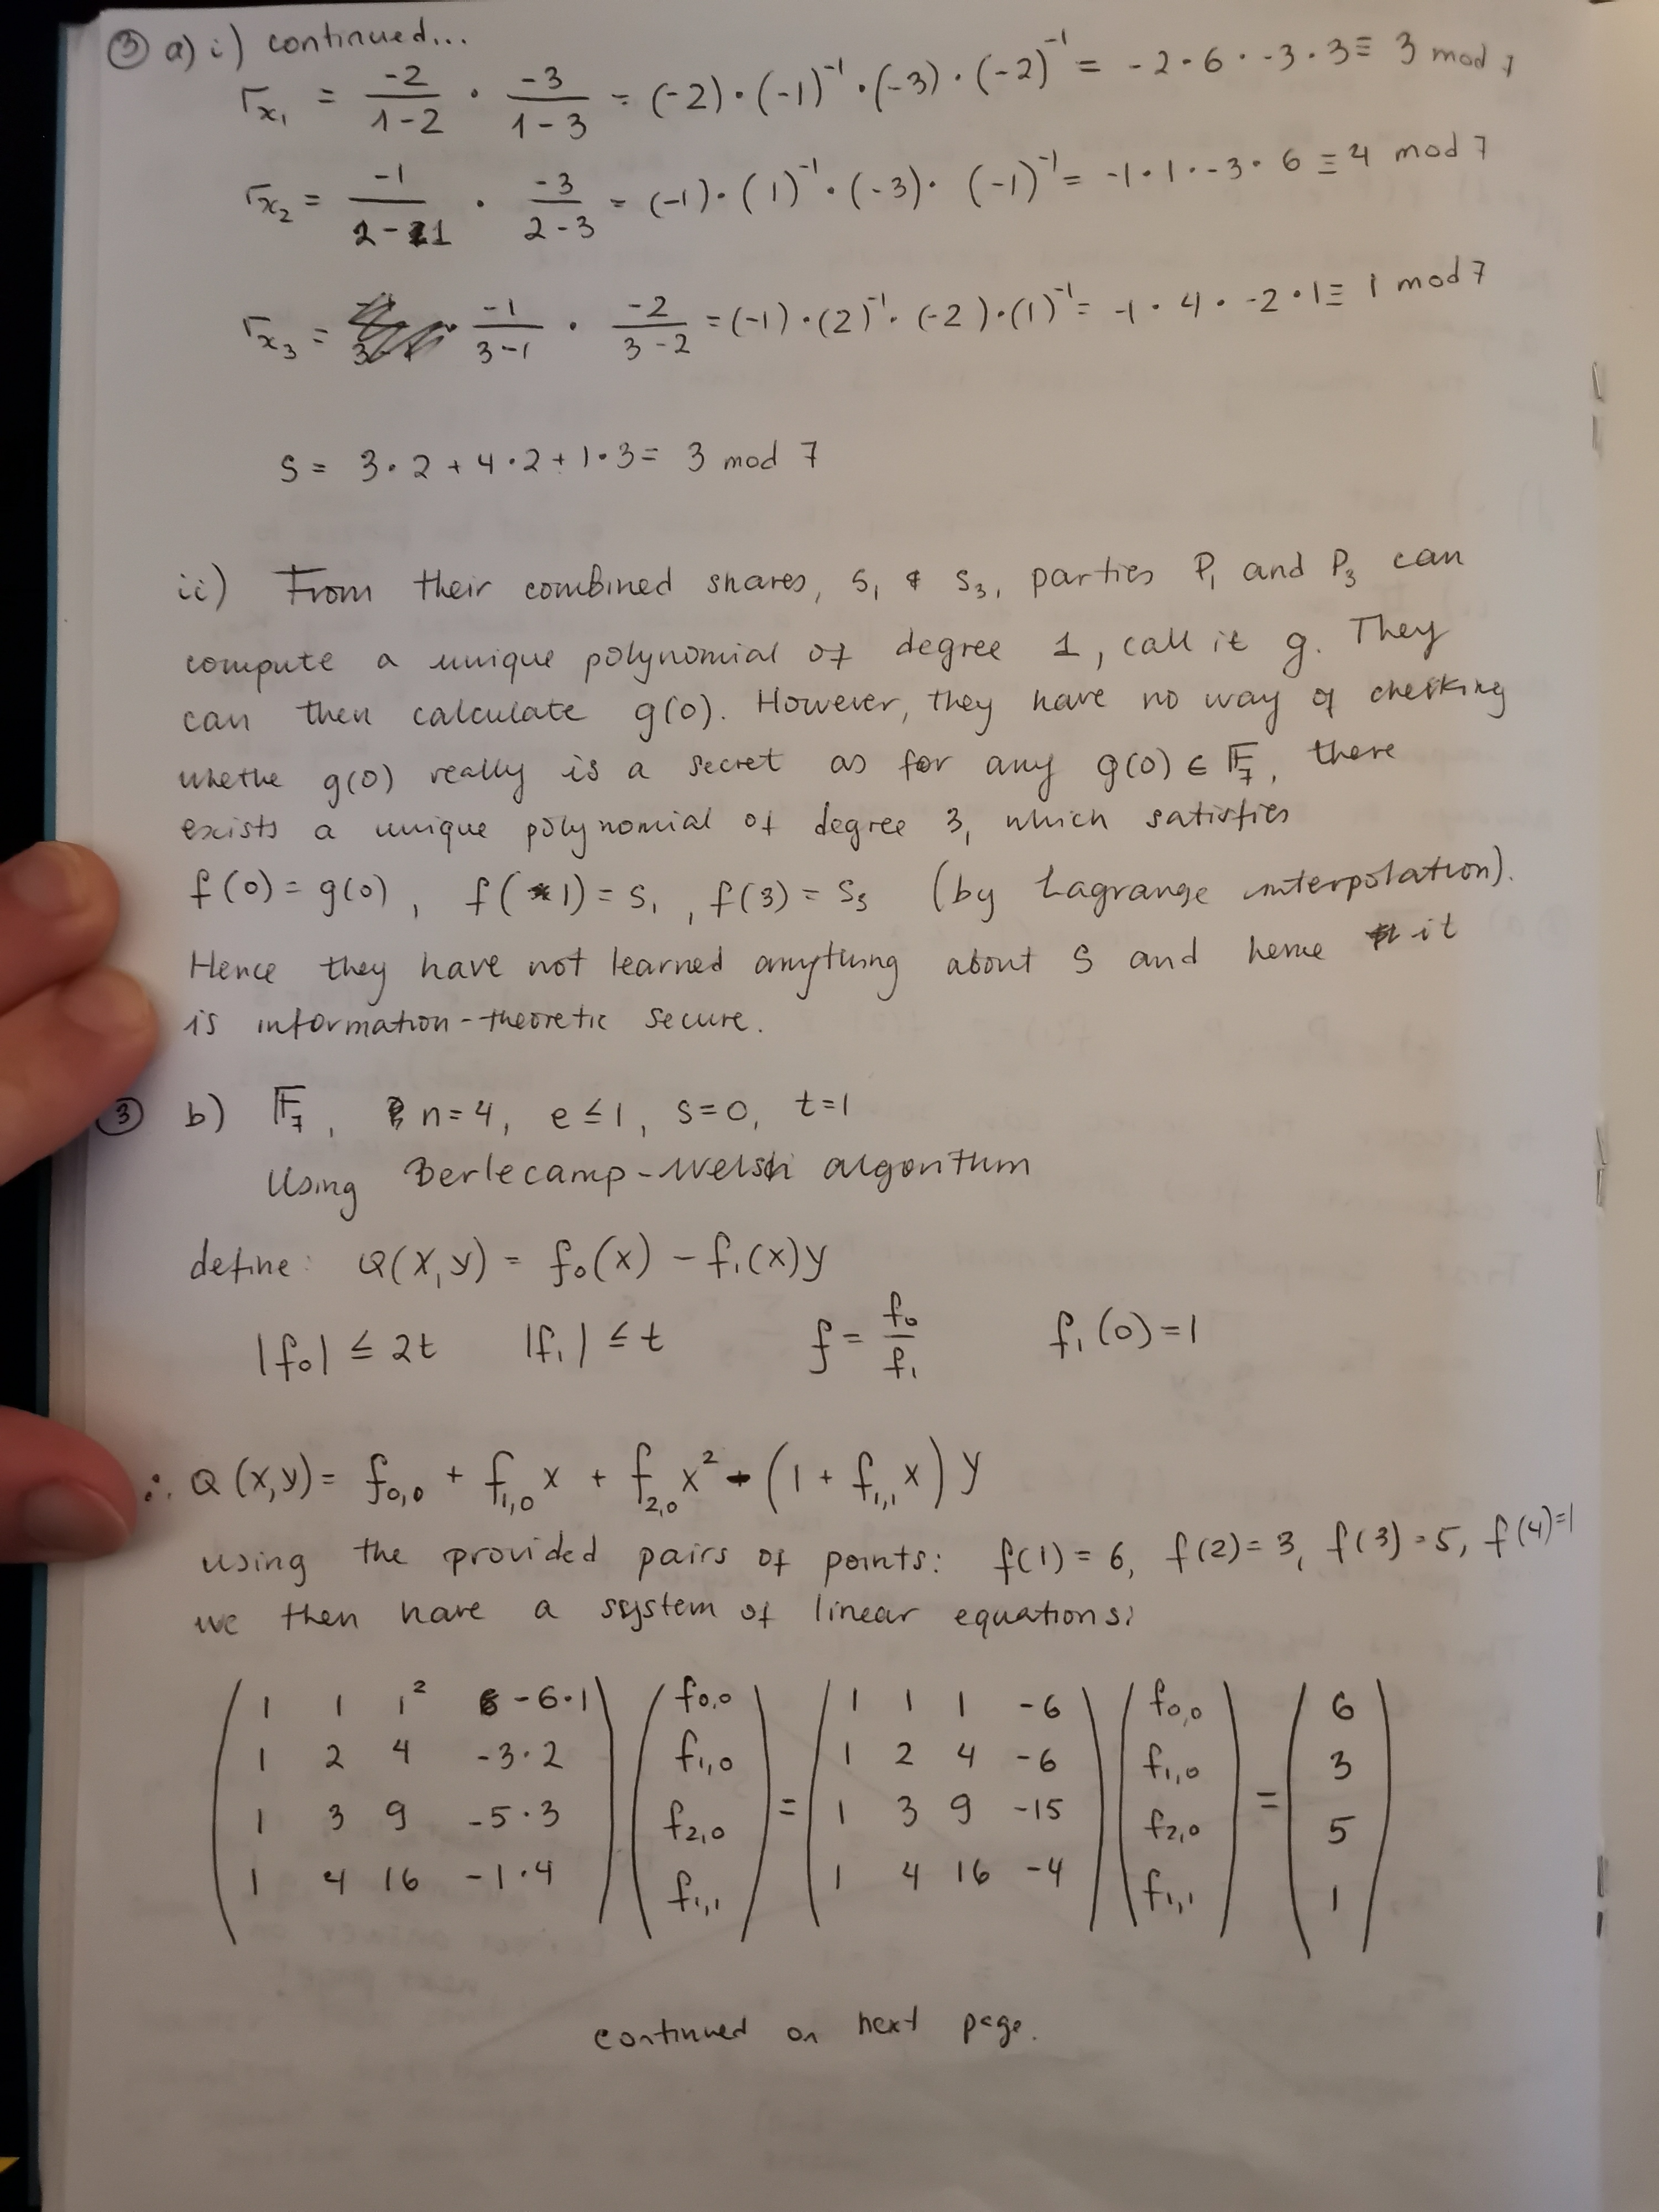 ③ a) i) continued...
r_{x_1} = \frac{-2}{1-2} · \frac{-3}{1-3} = (-2)·(-1)^{-1}·(-3)·(-2)^{-1} = -2·6·-3·3 ≡ 3 mod 7
r_{x_2} = \frac{-1}{2-1} · \frac{-3}{2-3} = (-1)·(1)^{-1}·(-3)·(-1)^{-1} = -1·1·-3·6 ≡ 4 mod 7
r_{x_3} = \frac{-1}{3-1} · \frac{-2}{3-2} = (-1)·(2)^{-1}·(-2)·(1)^{-1} = -1·4·-2·1 ≡ 1 mod 7
S = 3·2 + 4·2 + 1·3 = 3 mod 7
ii) From their combined shares, s₁ & s₃, parties P₁ and P₃ can
compute a unique polynomial of degree 1, call it g. They
can then calculate g(0). However, they have no way of checking
whethe g(0) really is a secret as for any g(0) ∈ 𝔽₇, there
exists a unique polynomial of degree 3, which satisfies
f(0) = g(0), f(1) = s₁, f(3) = s₃ (by Lagrange interpolation).
Hence they have not learned anything about S and hence it
is information-theoretic secure.
③ b) 𝔽₇, n=4, e≤1, s=0, t=1
Using Berlecamp-Welsh algorithm
define: Q(x,y) = f₀(x) - f₁(x)y
|f₀| ≤ 2t |f₁| ≤ t f = \frac{f₀}{f₁} f₁(0)=1
∴ Q(x,y) = f_{0,0} + f_{1,0}x + f_{2,0}x² - (1 + f_{1,1}x)y
using the provided pairs of points: f(1) = 6, f(2) = 3, f(3) = 5, f(4) = 1
we then have a system of linear equations:
1 1 1² -6·1 f_{0,0} 1 1 1 -6 f_{0,0} 6
1 2 4 -3·2 f_{1,0} 1 2 4 -6 f_{1,0} 3
1 3 9 -5·3 f_{2,0} = 1 3 9 -15 f_{2,0} = 5
1 4 16 -1·4 f_{1,1} 1 4 16 -4 f_{1,1} 1
continued on next page.